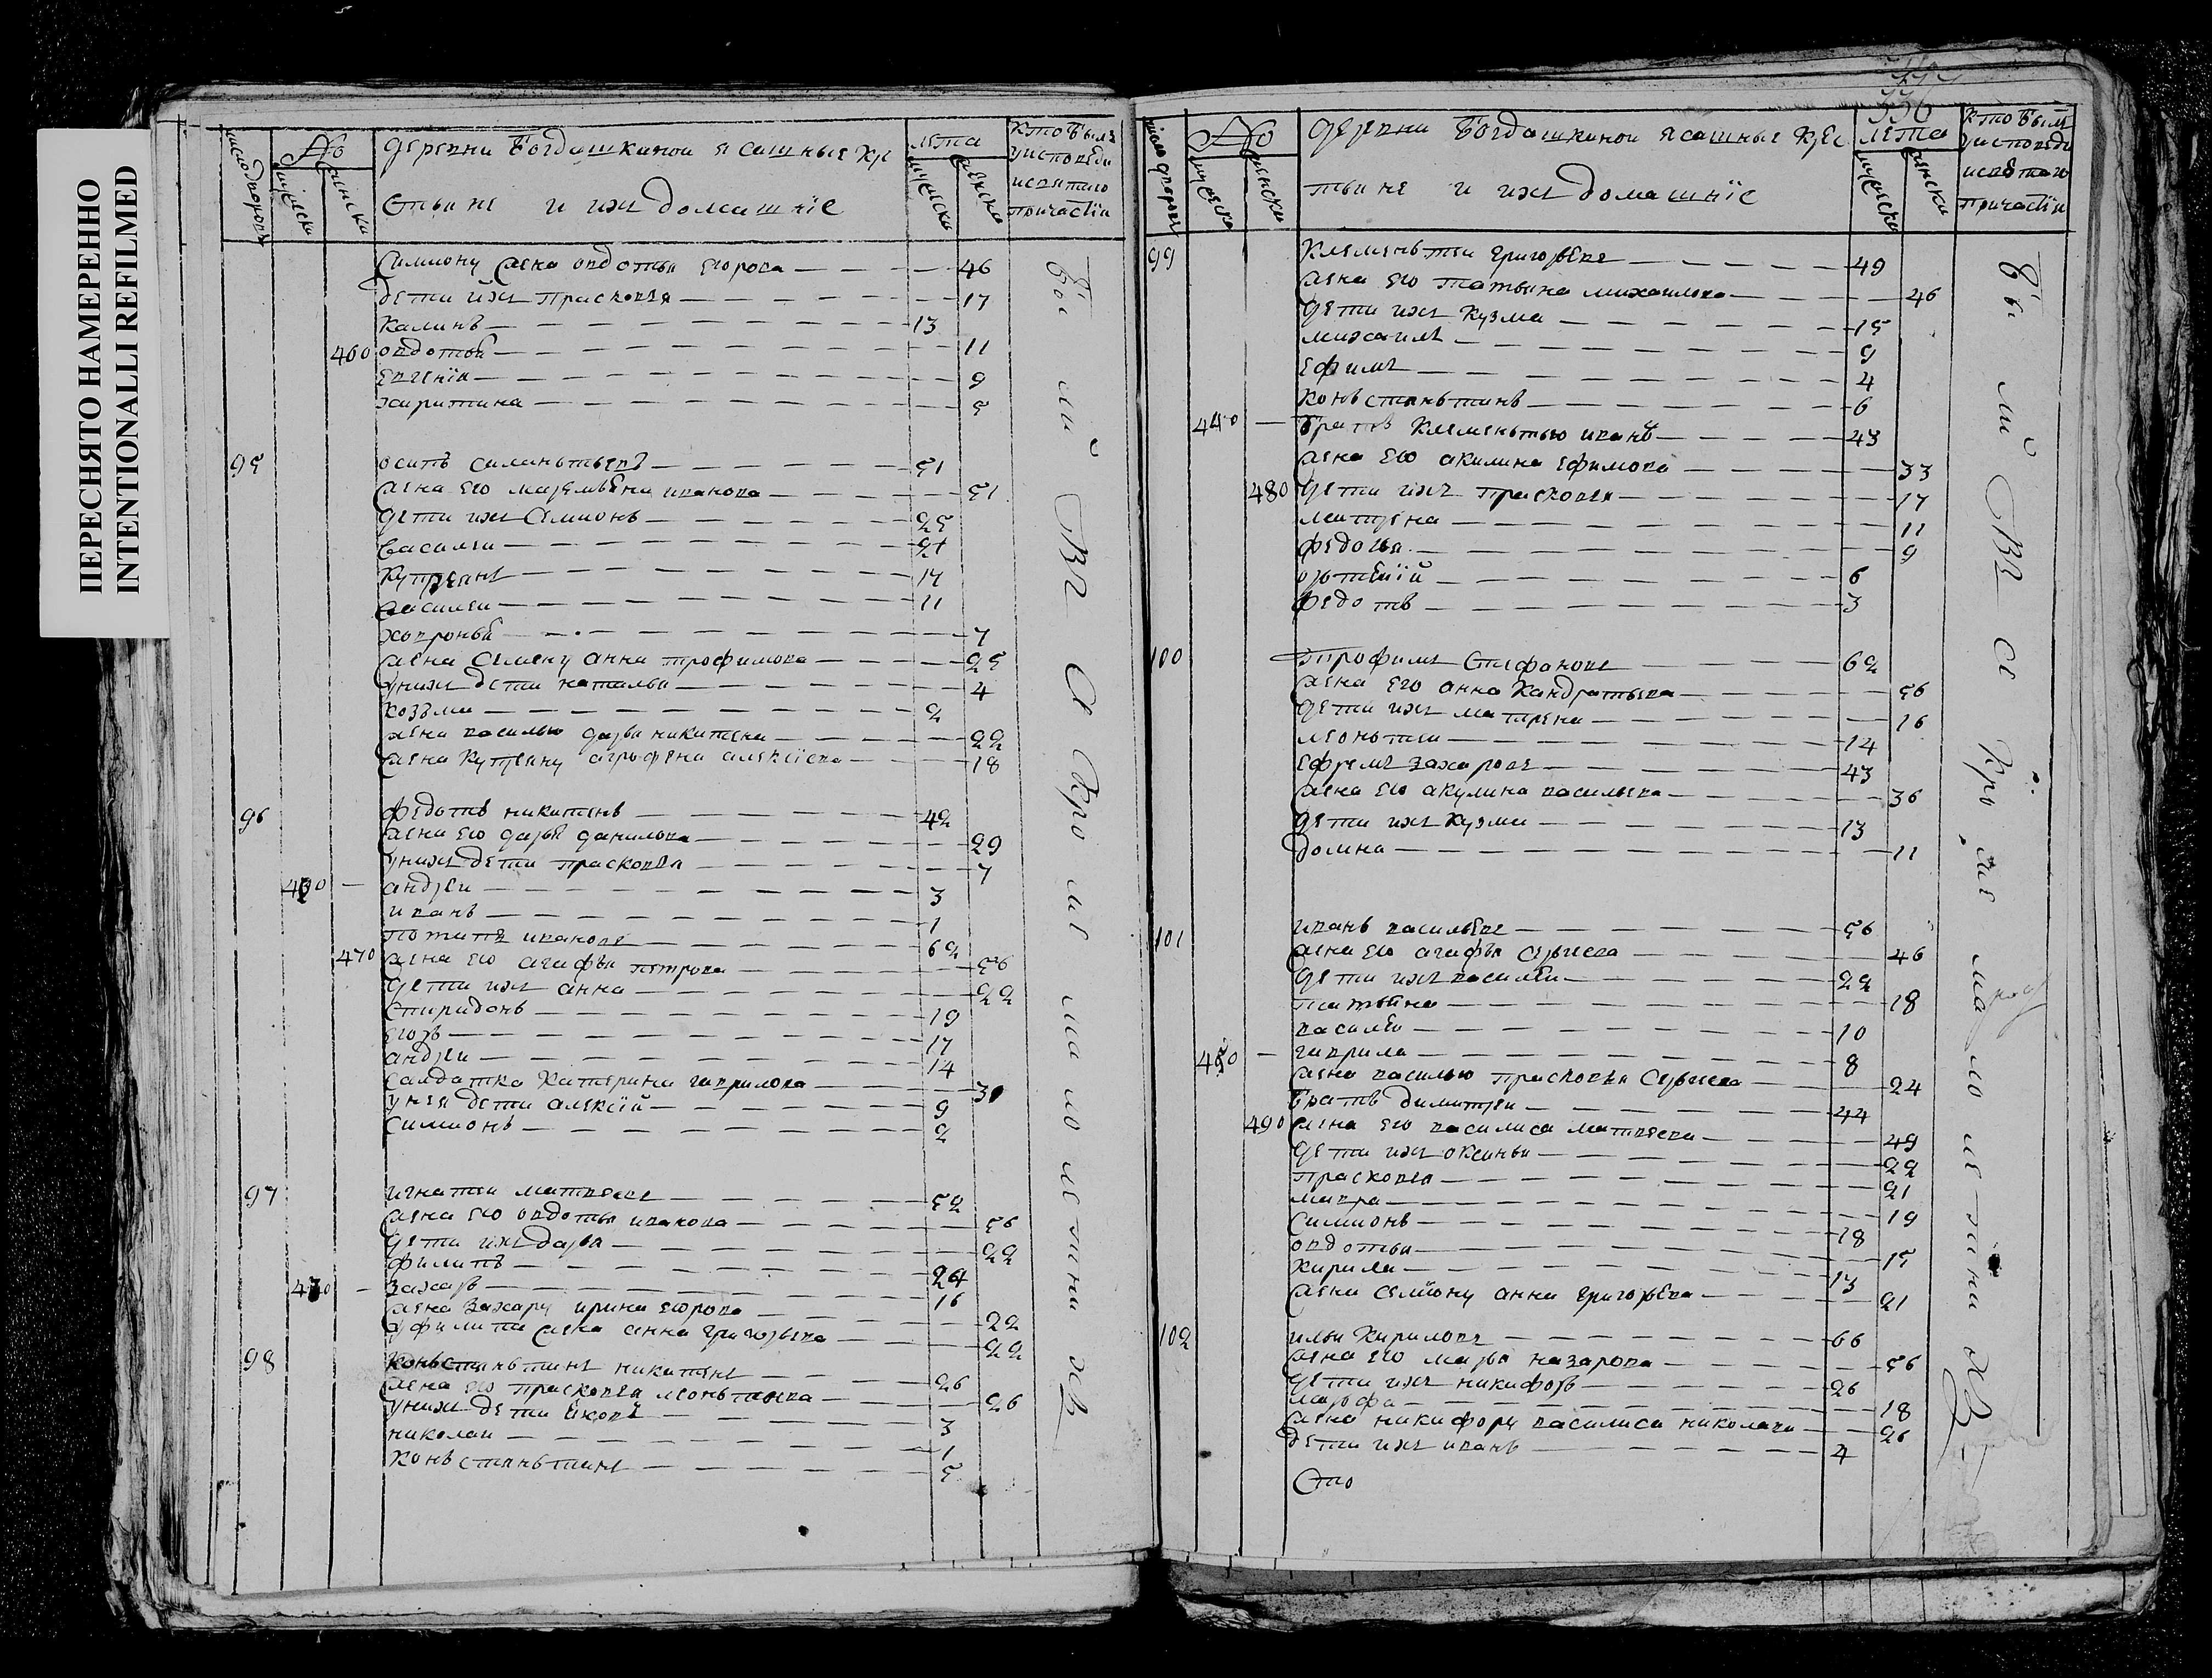 ПЕРЕСНЯТО НАМЕРЕННО
INTENTIONALLI REFILMED
число дворовъ
№
мужеска
женска
деревни богдашкиной ясашные кре
стьяне и ихъ домашнїе
лета
мужеска
женска
кто былъ
у исповеди
и святаго
причастїя
симиону жена овдотья егорова — 46
дети ихъ прасковья — 17
калинъ — 13
460 овдотья — 11
евгенїя — 9
харитина — 5
95 осипъ силиньтьевъ — 51
жена его маремьяна иванова — 51
дети ихъ симионъ — 25
василеи — 21
купреянъ — 17
василеи — 11
ховронья — 7
жена симену анна трофимова — 25
у нихъ дети наталья — 4
козъма — 2
жена василью дарья никитена — 22
жена купреяну агрофена алексїева — 18
96 федотъ никитенъ — 42
жена его дарья данилова — 29
у нихъ дети прасковья — 7
андреи — 3
иванъ — 1
потапъ ивановъ — 62
470 жена его агафья петрова — 56
дети ихъ анна — 22
спиридонъ — 19
егоръ — 17
андреи — 14
салдатка катерина гаврилова — 30
у нея дети алексїй — 9
симионъ — 2
97 игнатеи матвеевъ — 52
жена его овдотья иванова — 56
дети ихъ дарья — 22
филипъ — 24
захаръ — 16
жена захару ирина егорова — 22
у филипа жена анна григорьева — 22
98 коньстаньтинъ никитенъ — 26
жена его прасковья леоньтьева — 26
у нихъ дети яковъ — 3
николаи — 1
коньстаньтинъ — 5
336
число дворовъ
№
мужеска
женска
деревни богдашкиной ясашные крес
тьяне и ихъ домашнїе
лета
мужеска
женска
кто былъ
у исповеди
и святаго
причастїя
99 клеменьтеи григорьевъ — 49
жена его татьяна михаилова — 46
дети ихъ кузма — 15
михаилъ — 9
ефимъ — 4
коньстаньтинъ — 6
440 — братъ клеменьтью иванъ — 43
жена его акилина ефимова — 33
480 дети ихъ прасковья — 17
матрена — 11
федосья — 9
федотъ — 3
100 трофимъ стефановъ — 62
жена его анна кандратьева — 56
дети ихъ матрена — 16
леоньтеи — 14
ефремъ захаровъ — 43
жена его акулина васильева — 36
дети ихъ кузма — 13
домна — 11
101 иванъ васильевъ — 56
жена его агафья сергиева — 46
дети ихъ василеи — 22
татьяна — 18
василеи — 10
450 — гаврила — 8
жена василью прасковья сергиева — 24
братъ димитреи — 44
490 жена его василиса матвеева — 49
дети ихъ оксинья — 22
прасковья — 21
мавра — 19
симионъ — 18
овдотья — 15
кирила — 13
жена семиону анна григорьева — 21
102 илья кириловъ — 66
жена его марья назарова — 56
дети ихъ никифоръ — 26
марфа — 18
жена никифору василиса николаева — 26
дети ихъ иванъ — 4
Сто